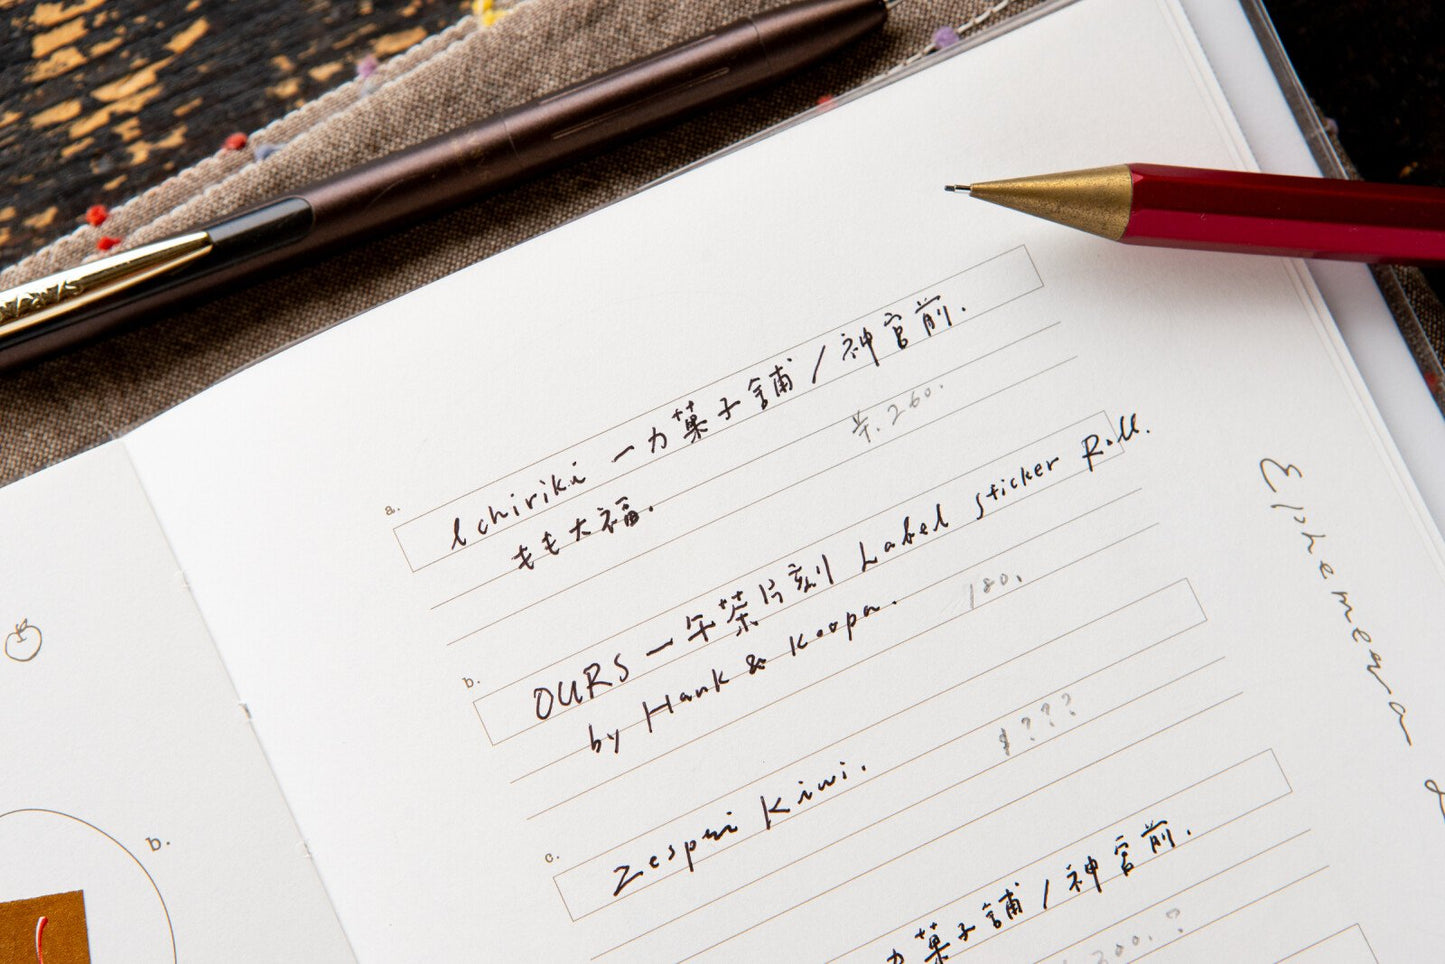 a.
Ichiriki 一力菓子舗/神宮前.
もも大福.
羊.260.
b.
OURS 一午茶片刻 Label sticker Roll.
by Hank & Koopa. 180.
c.
Zespri Kiwi. $???
力菓子舗/神宮前.
200.?
Ephemera
b.